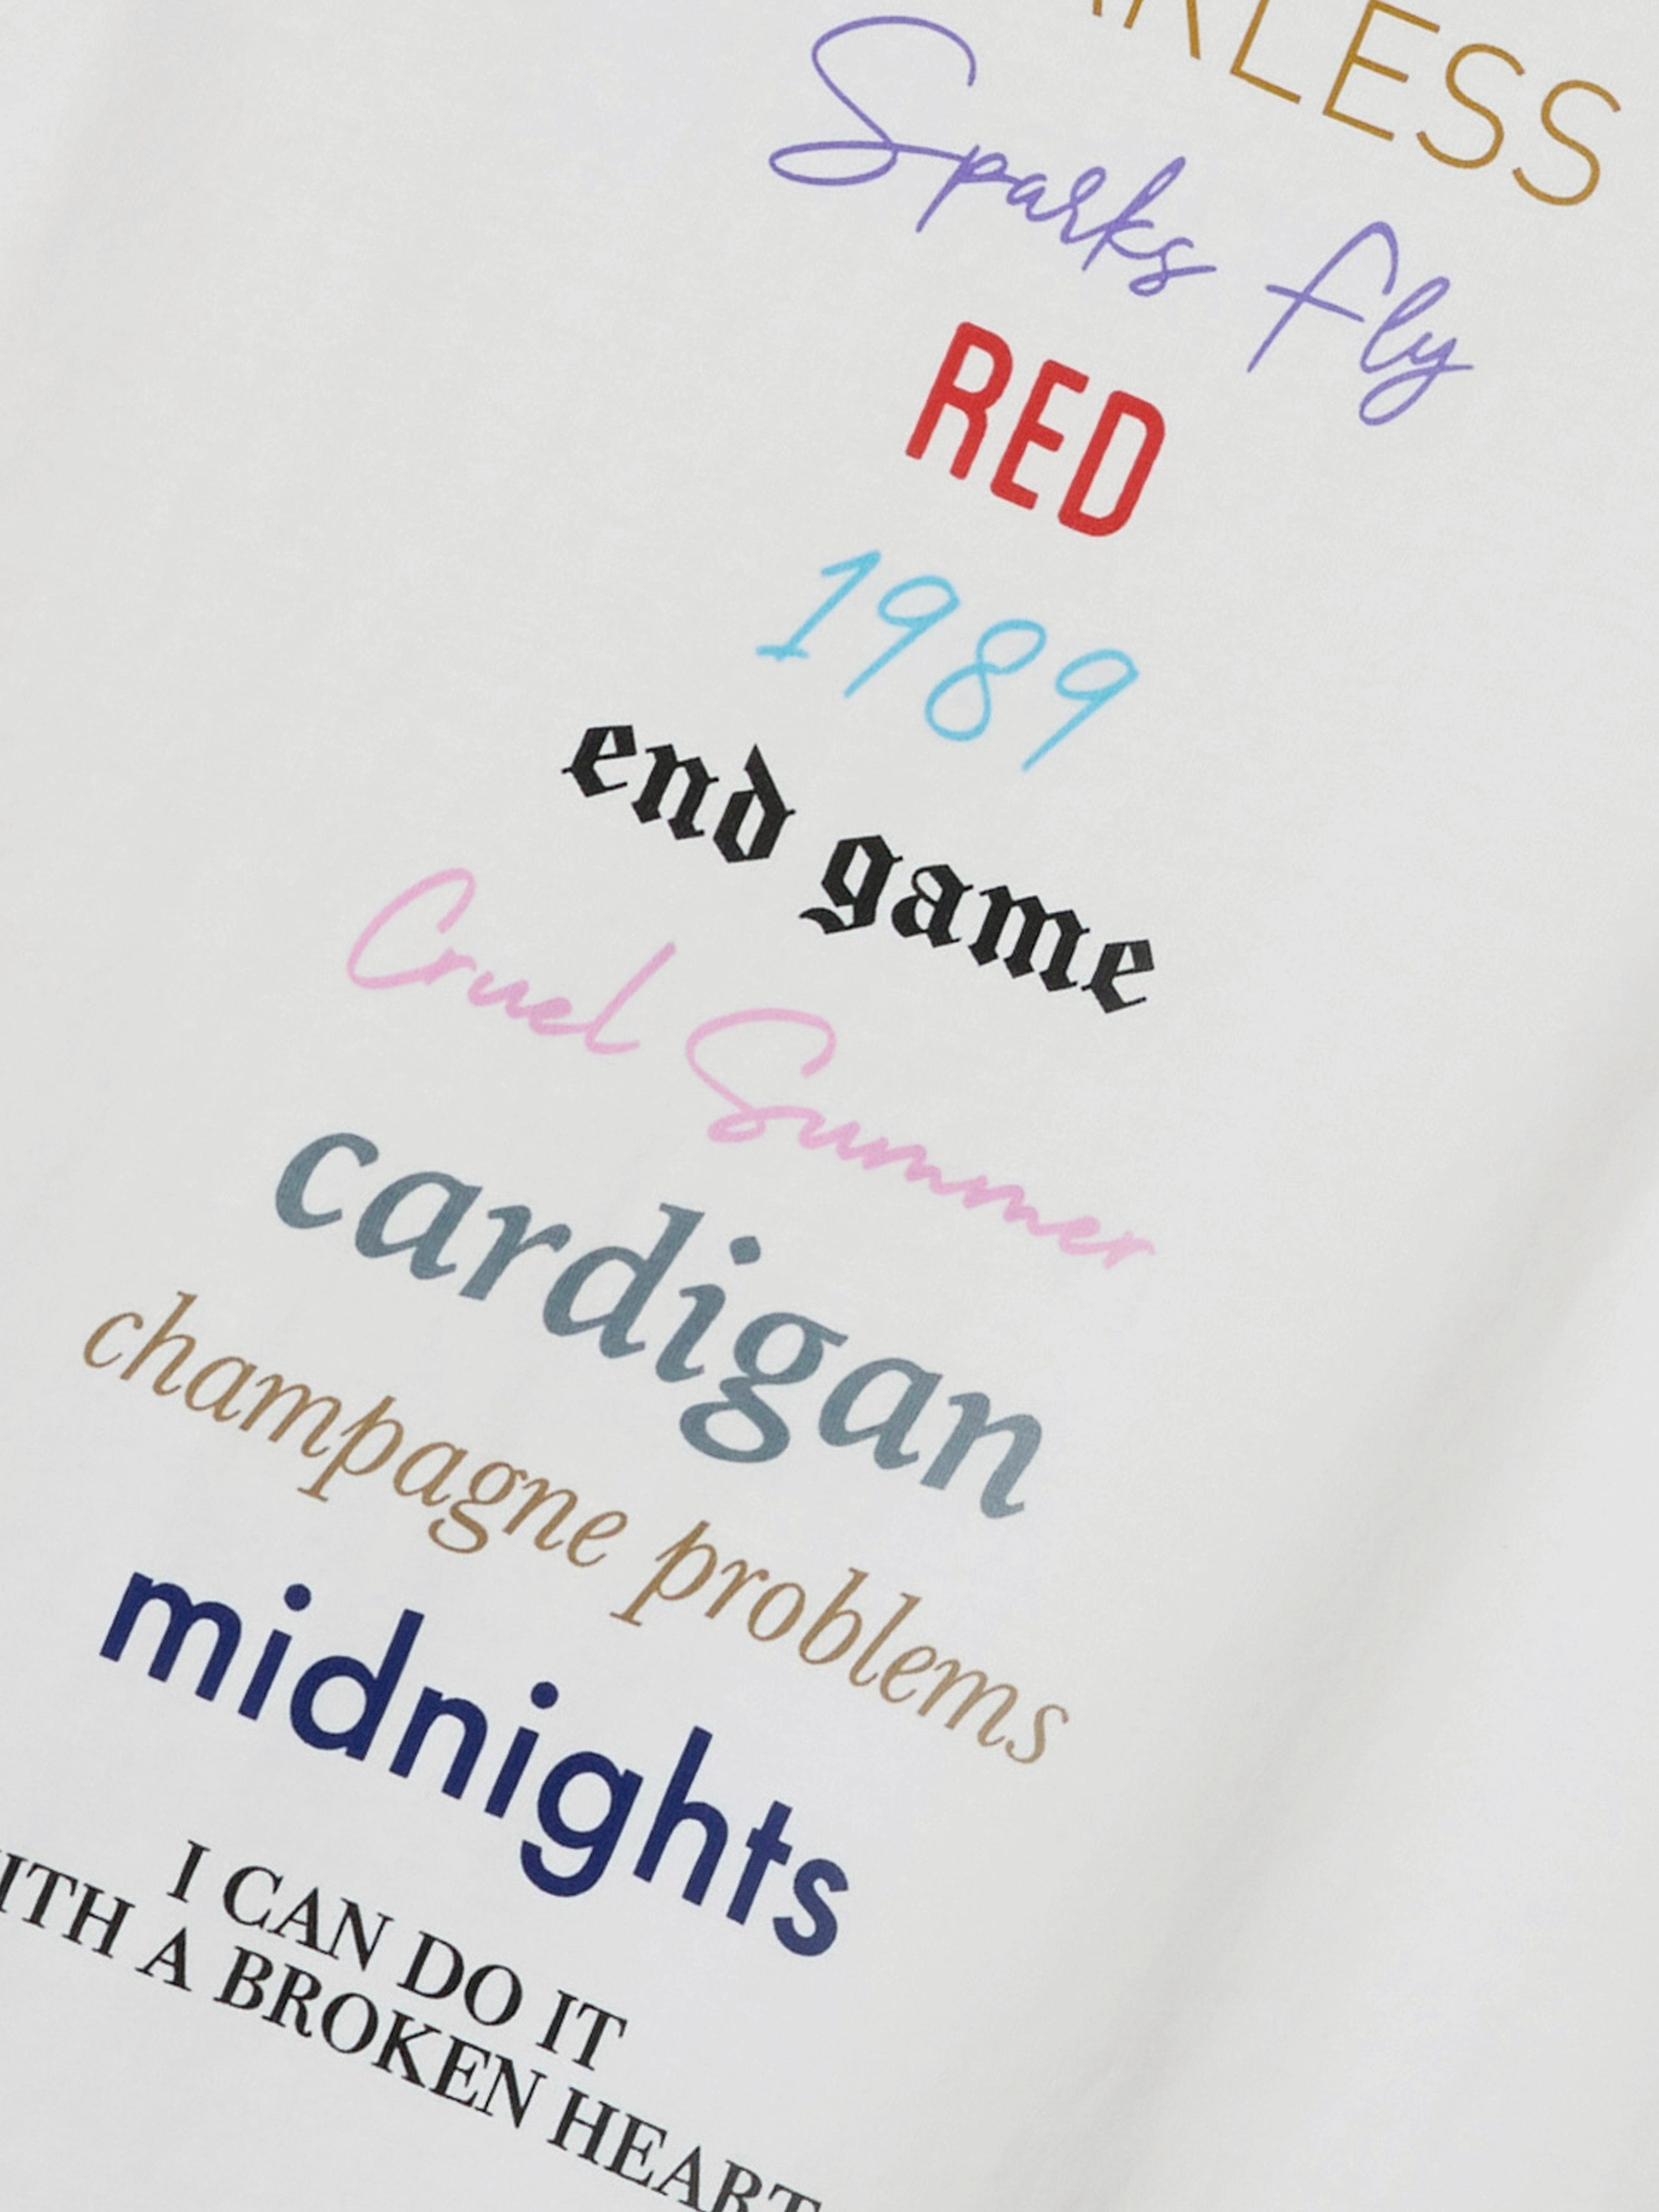 RLESS
Sparks fly
RED
1989
end game
Cruel Summer
cardigan
champagne problems
midnights
I CAN DO IT
ITH A BROKEN HEART